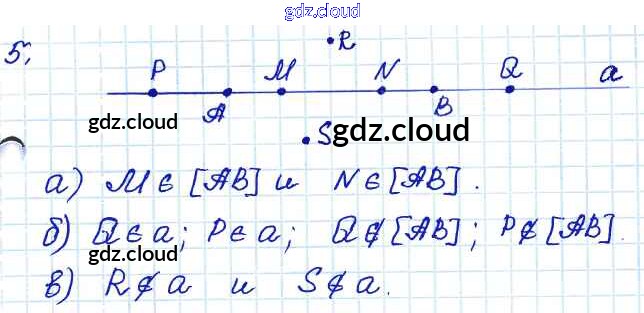 gdz.cloud
5. .R
P M N Q a
A B
gdz.cloud .S gdz.cloud
а) M ∈ [AB] и N ∈ [AB].
б) Q ∈ a; P ∈ a; Q ∉ [AB]; P ∉ [AB].
gdz.cloud
в) R ∉ a и S ∉ a.